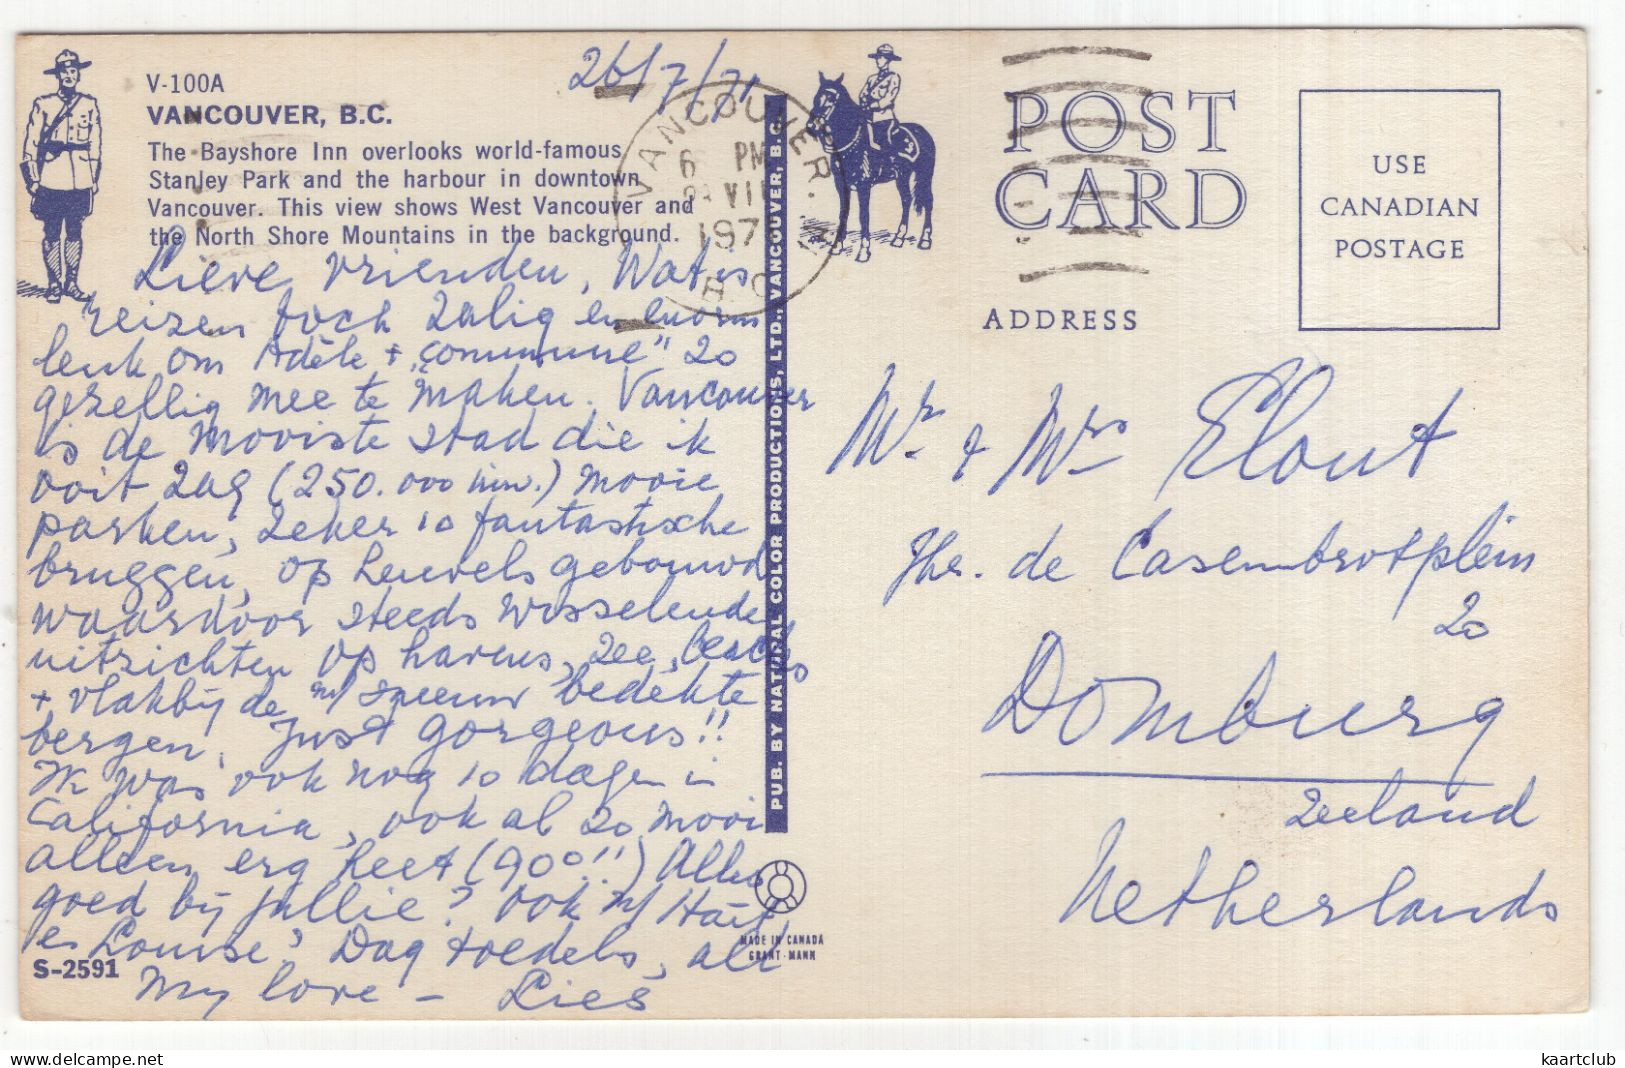 V-100A
VANCOUVER, B.C.
The Bayshore Inn overlooks world-famous
Stanley Park and the harbour in downtown
Vancouver. This view shows West Vancouver and
the North Shore Mountains in the background.
26/7/71
VANCOUVER.
6 PM
VII
197
B.C.
Lieve vrienden, Wat is
reizen toch zalig en enorm
leuk om Adèle + „commune" zo
gezellig mee te maken. Vancouver
is de mooiste stad die ik
ooit zag (250.000 inw.) mooie
parken, zeker 10 fantastische
bruggen, op heuvels gebouwd
waardoor steeds wisselende
uitzichten op havens, zee, beaches
+ vlakbij de m/ sneeuw bedekte
bergen. Just gorgeous!!
Ik was ook nog 10 dagen in
California, ook al zo mooi
alleen erg heet (90°!!) Alles
goed bij jullie? Ook m/
en Louise? Dag toedels, all
my love – Lies
S-2591
PUB. BY NATURAL COLOR PRODUCTIONS, LTD., VANCOUVER, B.C.
MADE IN CANADA
GRANT-MANN
POST
CARD
ADDRESS
USE
CANADIAN
POSTAGE
Mr & Mrs Elout
Jhr. de Casembrotplein
20
Domburg
Zeeland
Netherlands
kaartclub